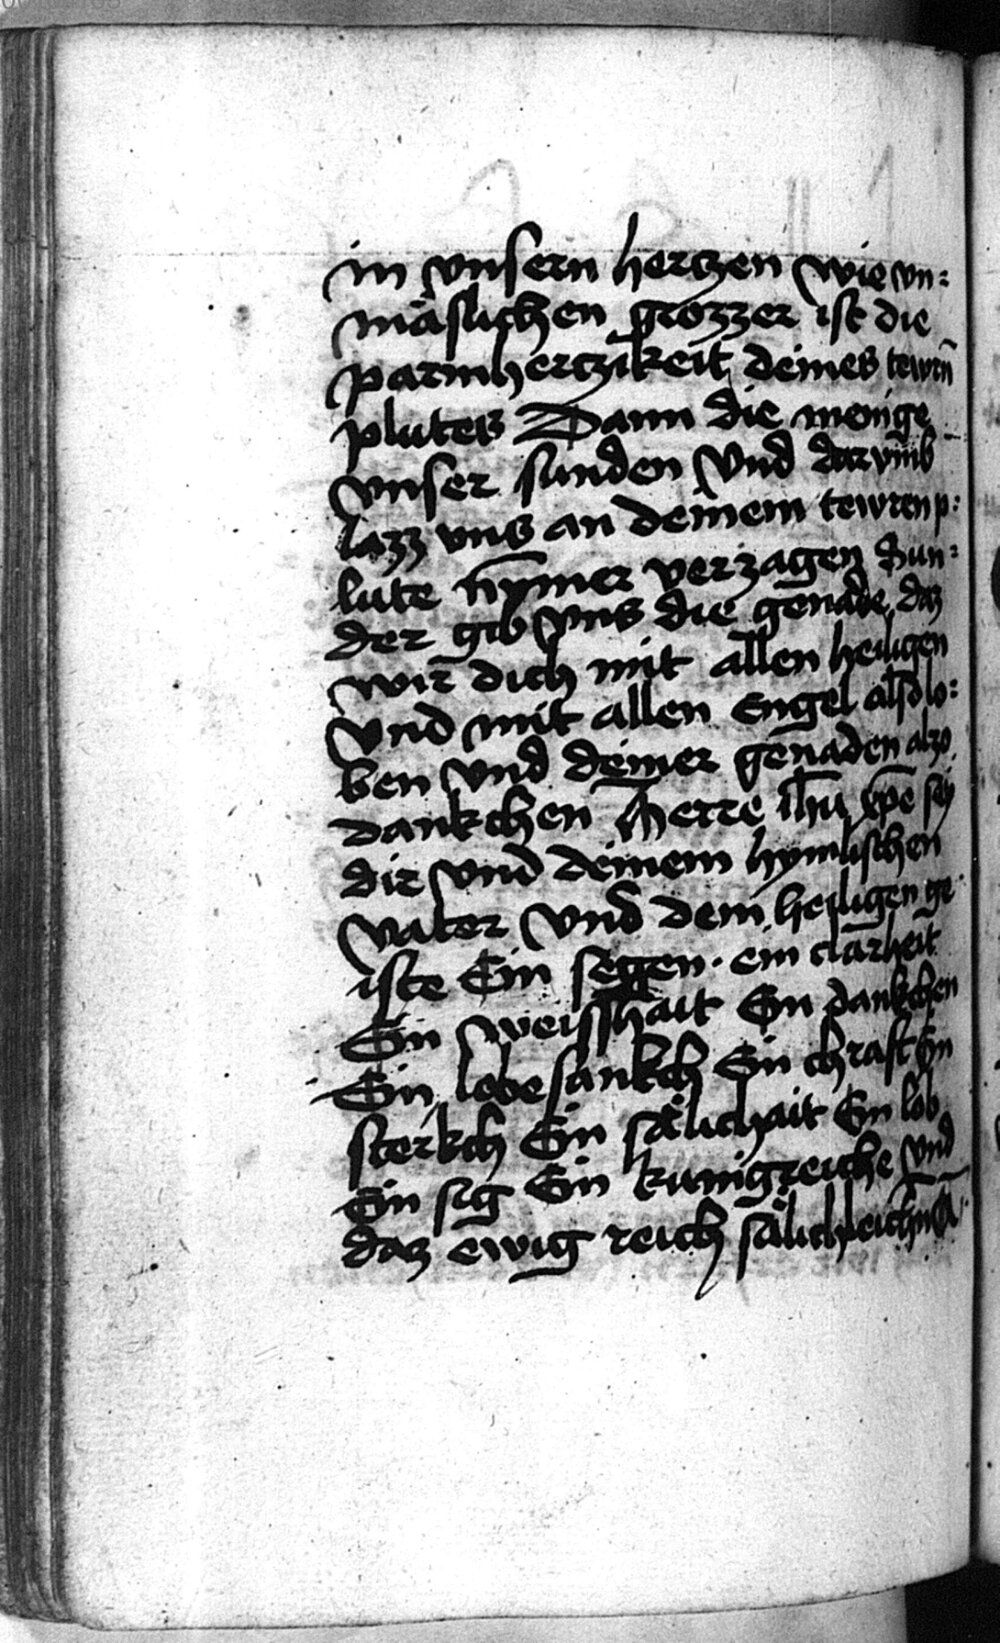 in vnsern hertzen wie vn:
mäslichen grozzer ist die
parmhertzikeit deines tewrn̄
plutes Dann die menige
vnser sunden Vnd darvmb
lazz vns an deinem tewren p:
lute nȳmer verzagen Sun:
der gib vns die genade daz
wir dich mit allen heiligen
Vnd mit allen Engel also lo:
ben Vnd deiner genaden alzo
dankchen Herre ih̄u xp̄e sey
dir Vnd deinem hymlischen
vater Vnd dem heiligen ge
iste Ein segen · ein clarheit
Ein weisshait Ein dankchen
Ein lobesankch Ein chraft Ein
sterkch Ein sälichait Ein lob
Ein sig Ein kunigreiche vnd
daz ewig reich sälichleichn̄ Ā